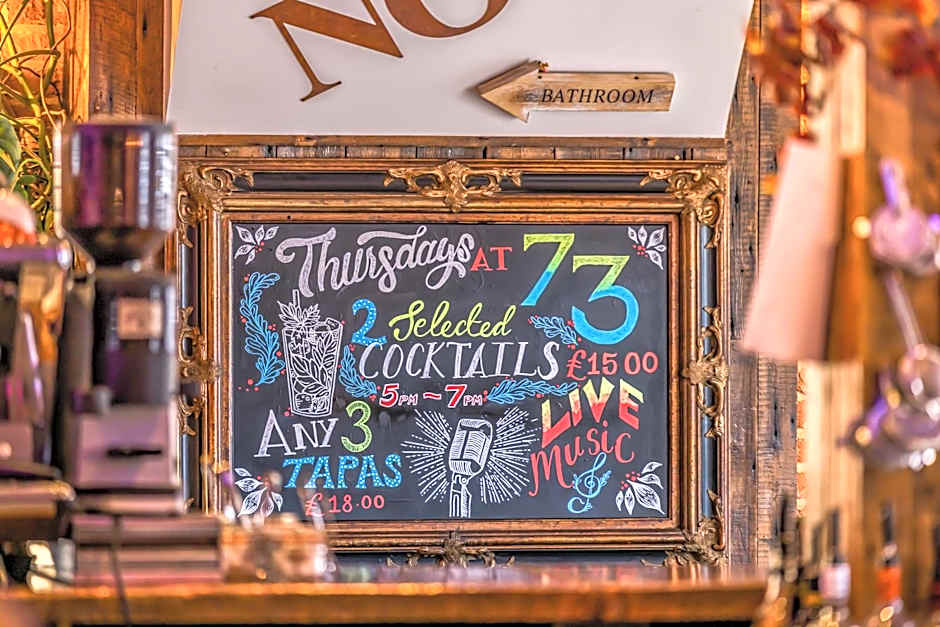 NO
BATHROOM
Thursdays AT 73
2 Selected
COCKTAILS £15 00
5PM ~ 7PM
ANY 3
TAPAS
£18.00
LIVE
Music